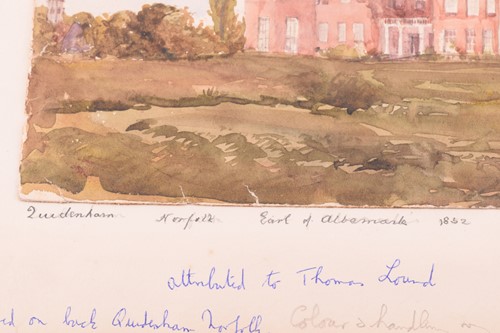 Quidenham Norfolk Earl of Albemarle 1832
attributed to Thomas Lound
on back Quidenham Norfolk Colour is handled